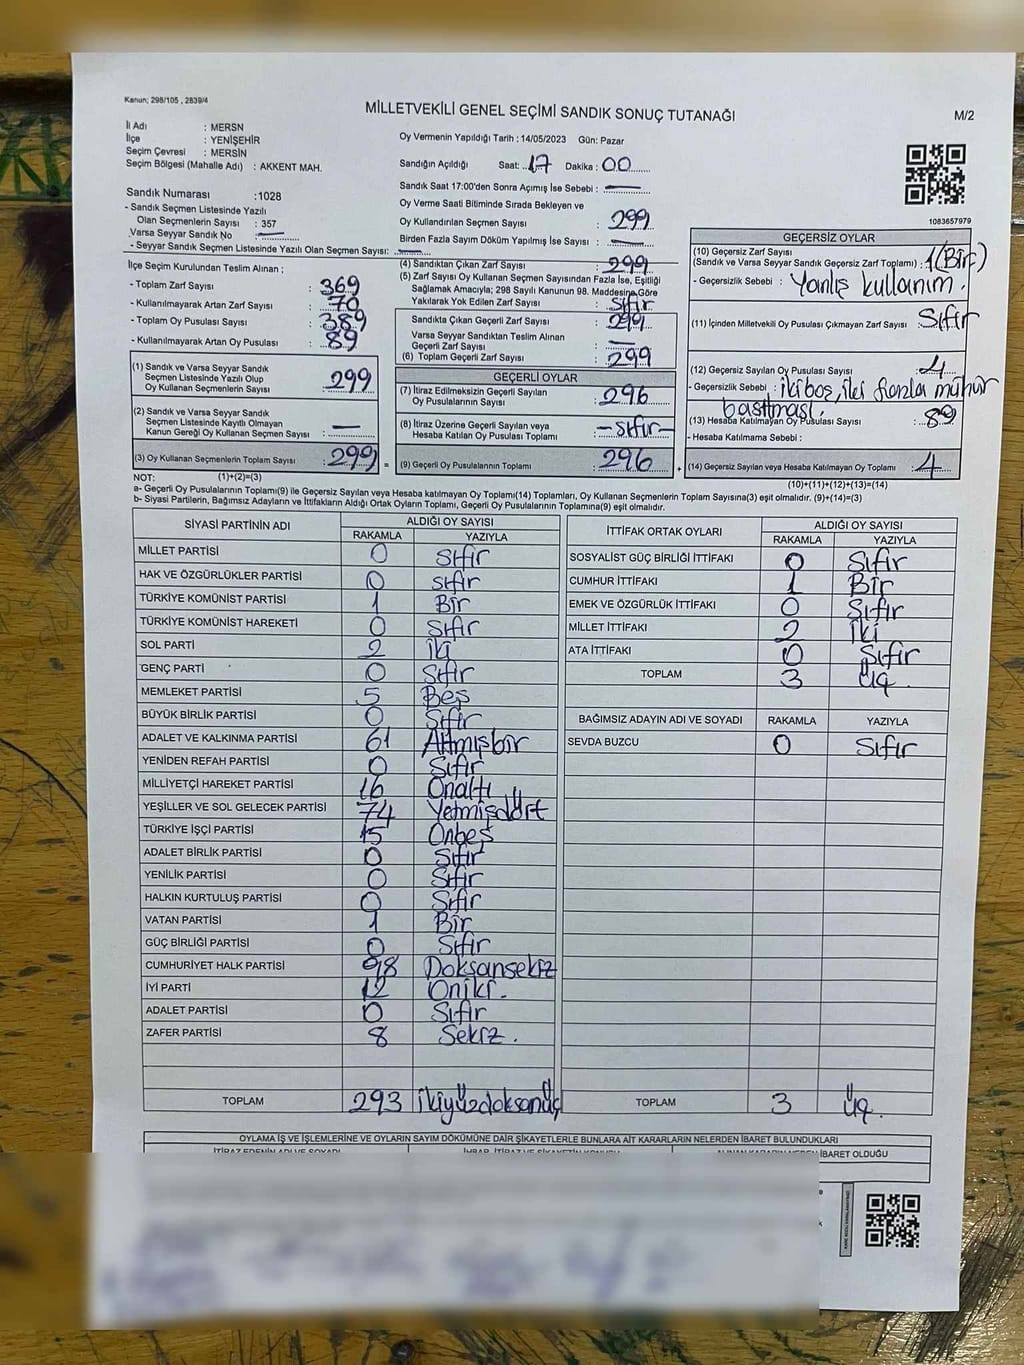 Kanun; 298/105 , 2839/4
MİLLETVEKİLİ GENEL SEÇİMİ SANDIK SONUÇ TUTANAĞI
M/2
İl Adı : MERSN
İlçe : YENİŞEHİR
Seçim Çevresi : MERSİN
Seçim Bölgesi (Mahalle Adı) : AKKENT MAH.
Oy Vermenin Yapıldığı Tarih : 14/05/2023 Gün: Pazar
Sandığın Açıldığı Saat: 17 Dakika : 00
Sandık Saat 17:00'den Sonra Açımış İse Sebebi : —
Oy Verme Saati Bitiminde Sırada Bekleyen ve
Oy Kullandırılan Seçmen Sayısı : 299
Birden Fazla Sayım Döküm Yapılmış İse Sayısı : —
1083657979
Sandık Numarası :1028
- Sandık Seçmen Listesinde Yazılı
Olan Seçmenlerin Sayısı : 357
Varsa Seyyar Sandık No : —
- Seyyar Sandık Seçmen Listesinde Yazılı Olan Seçmen Sayısı: —
İlçe Seçim Kurulundan Teslim Alınan ;
- Toplam Zarf Sayısı : 369
- Kullanılmayarak Artan Zarf Sayısı : 70
- Toplam Oy Pusulası Sayısı : 389
- Kullanılmayarak Artan Oy Pusulası : 89
(1) Sandık ve Varsa Seyyar Sandık
Seçmen Listesinde Yazılı Olup
Oy Kullanan Seçmenlerin Sayısı : 299
(2) Sandık ve Varsa Seyyar Sandık
Seçmen Listesinde Kayıtlı Olmayan
Kanun Gereği Oy Kullanan Seçmen Sayısı : —
(3) Oy Kullanan Seçmenlerin Toplam Sayısı : 299 =
(4) Sandıktan Çıkan Zarf Sayısı : 299
(5) Zarf Sayısı Oy Kullanan Seçmen Sayısından Fazla İse, Eşitliği
Sağlamak Amacıyla; 298 Sayılı Kanunun 98. Maddesine Göre
Yakılarak Yok Edilen Zarf Sayısı : Sıfır
Sandıkta Çıkan Geçerli Zarf Sayısı : 299
Varsa Seyyar Sandıktan Teslim Alınan
Geçerli Zarf Sayısı : —
(6) Toplam Geçerli Zarf Sayısı : 299
GEÇERLİ OYLAR
(7) İtiraz Edilmeksizin Geçerli Sayılan
Oy Pusulalarının Sayısı : 296
(8) İtiraz Üzerine Geçerli Sayılan veya
Hesaba Katılan Oy Pusulası Toplamı : -sıfır-
(9) Geçerli Oy Pusulalarının Toplamı : 296 +
GEÇERSİZ OYLAR
(10) Geçersiz Zarf Sayısı
(Sandık ve Varsa Seyyar Sandık Geçersiz Zarf Toplamı) : 1 (Bir)
- Geçersizlik Sebebi : Yanlış kullanım.
(11) İçinden Milletvekili Oy Pusulası Çıkmayan Zarf Sayısı : Sıfır
(12) Geçersiz Sayılan Oy Pusulası Sayısı : 4
- Geçersizlik Sebebi : iki boş, iki fazla mühür
basılması.
(13) Hesaba Katılmayan Oy Pusulası Sayısı : 89
- Hesaba Katılmama Sebebi :
(14) Geçersiz Sayılan veya Hesaba Katılmayan Oy Toplamı : 4
NOT: (1)+(2)=(3)
(10)+(11)+(12)+(13)=(14)
a- Geçerli Oy Pusulalarının Toplamı(9) ile Geçersiz Sayılan veya Hesaba katılmayan Oy Toplamı(14) Toplamları, Oy Kullanan Seçmenlerin Toplam Sayısına(3) eşit olmalıdır. (9)+(14)=(3)
b- Siyasi Partilerin, Bağımsız Adayların ve İttifakların Aldığı Ortak Oyların Toplamı, Geçerli Oy Pusulalarının Toplamına(9) eşit olmalıdır.
SİYASİ PARTİNİN ADI ALDIĞI OY SAYISI
RAKAMLA YAZIYLA
MİLLET PARTİSİ 0 Sıfır
HAK VE ÖZGÜRLÜKLER PARTİSİ 0 sıfır
TÜRKİYE KOMÜNİST PARTİSİ 1 Bir
TÜRKİYE KOMÜNİST HAREKETİ 0 Sıfır
SOL PARTİ 2 iki
GENÇ PARTİ 0 Sıfır
MEMLEKET PARTİSİ 5 Beş
BÜYÜK BİRLİK PARTİSİ 0 Sıfır
ADALET VE KALKINMA PARTİSİ 61 Altmışbir
YENİDEN REFAH PARTİSİ 0 Sıfır
MİLLİYETÇİ HAREKET PARTİSİ 16 Onaltı
YEŞİLLER VE SOL GELECEK PARTİSİ 74 Yetmişdört
TÜRKİYE İŞÇİ PARTİSİ 15 Onbeş
ADALET BİRLİK PARTİSİ 0 Sıfır
YENİLİK PARTİSİ 0 Sıfır
HALKIN KURTULUŞ PARTİSİ 0 Sıfır
VATAN PARTİSİ 1 Bir
GÜÇ BİRLİĞİ PARTİSİ 0 Sıfır
CUMHURİYET HALK PARTİSİ 98 Doksansekiz
İYİ PARTİ 12 Oniki.
ADALET PARTİSİ 0 Sıfır
ZAFER PARTİSİ 8 Sekiz.
TOPLAM 293 ikiyüzdoksanüç
İTTİFAK ORTAK OYLARI ALDIĞI OY SAYISI
RAKAMLA YAZIYLA
SOSYALİST GÜÇ BİRLİĞİ İTTİFAKI 0 Sıfır
CUMHUR İTTİFAKI 1 Bir
EMEK VE ÖZGÜRLÜK İTTİFAKI 0 Sıfır
MİLLET İTTİFAKI 2 iki
ATA İTTİFAKI 0 Sıfır
TOPLAM 3 üç
BAĞIMSIZ ADAYIN ADI VE SOYADI RAKAMLA YAZIYLA
SEVDA BUZCU 0 Sıfır
TOPLAM 3 üç.
OYLAMA İŞ VE İŞLEMLERİNE VE OYLARIN SAYIM DÖKÜMÜNE DAİR ŞİKAYETLERLE BUNLARA AİT KARARLARIN NELERDEN İBARET BULUNDUKLARI
İBARET OLDUĞU